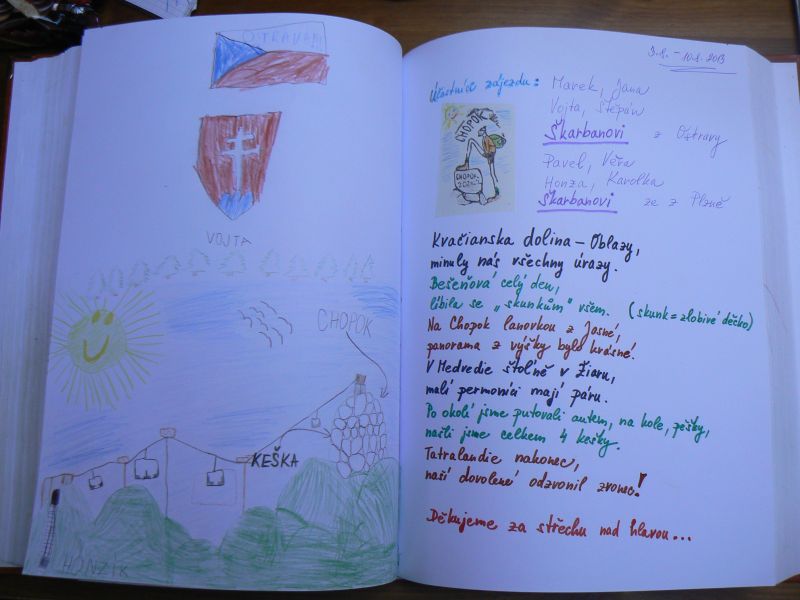 OSTRAVA!!!
VOJTA
CHOPOK
KEŠKA
HONZIK
10.8. 2013
Účastníci zájezdu:
Marek, Jana
Vojta, Štěpán
Škarbanovi z Ostravy
Pavel, Věra
Honza, Karolka
Škarbanovi ze z Plzně
CHOPOK
CHOPOK
2024 m
Kvačianska dolina – Oblazy,
minuly nás všechny úrazy.
Bešeňová celý den,
líbila se „skunkům" všem. (skunk = zlobivé děcko)
Na Chopok lanovkou z Jasné,
panorama z výšky bylo krásné!
V Medvedie štolně v Žiaru,
malí permoníci mají páru.
Po okolí jsme putovali autem, na kole, pěšky,
našli jsme celkem 4 kešky.
Tatralandie nakonec,
naší dovolené odzvonil zvonec!
Děkujeme za střechu nad hlavou...